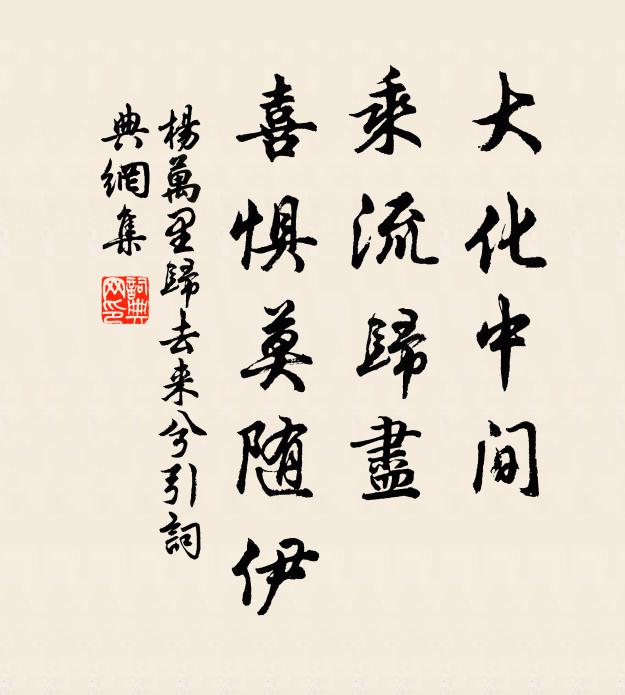 大化中间
乘流歸盡
喜惧莫随伊
楊萬里歸去来兮引詞
典網集
詞典
网印